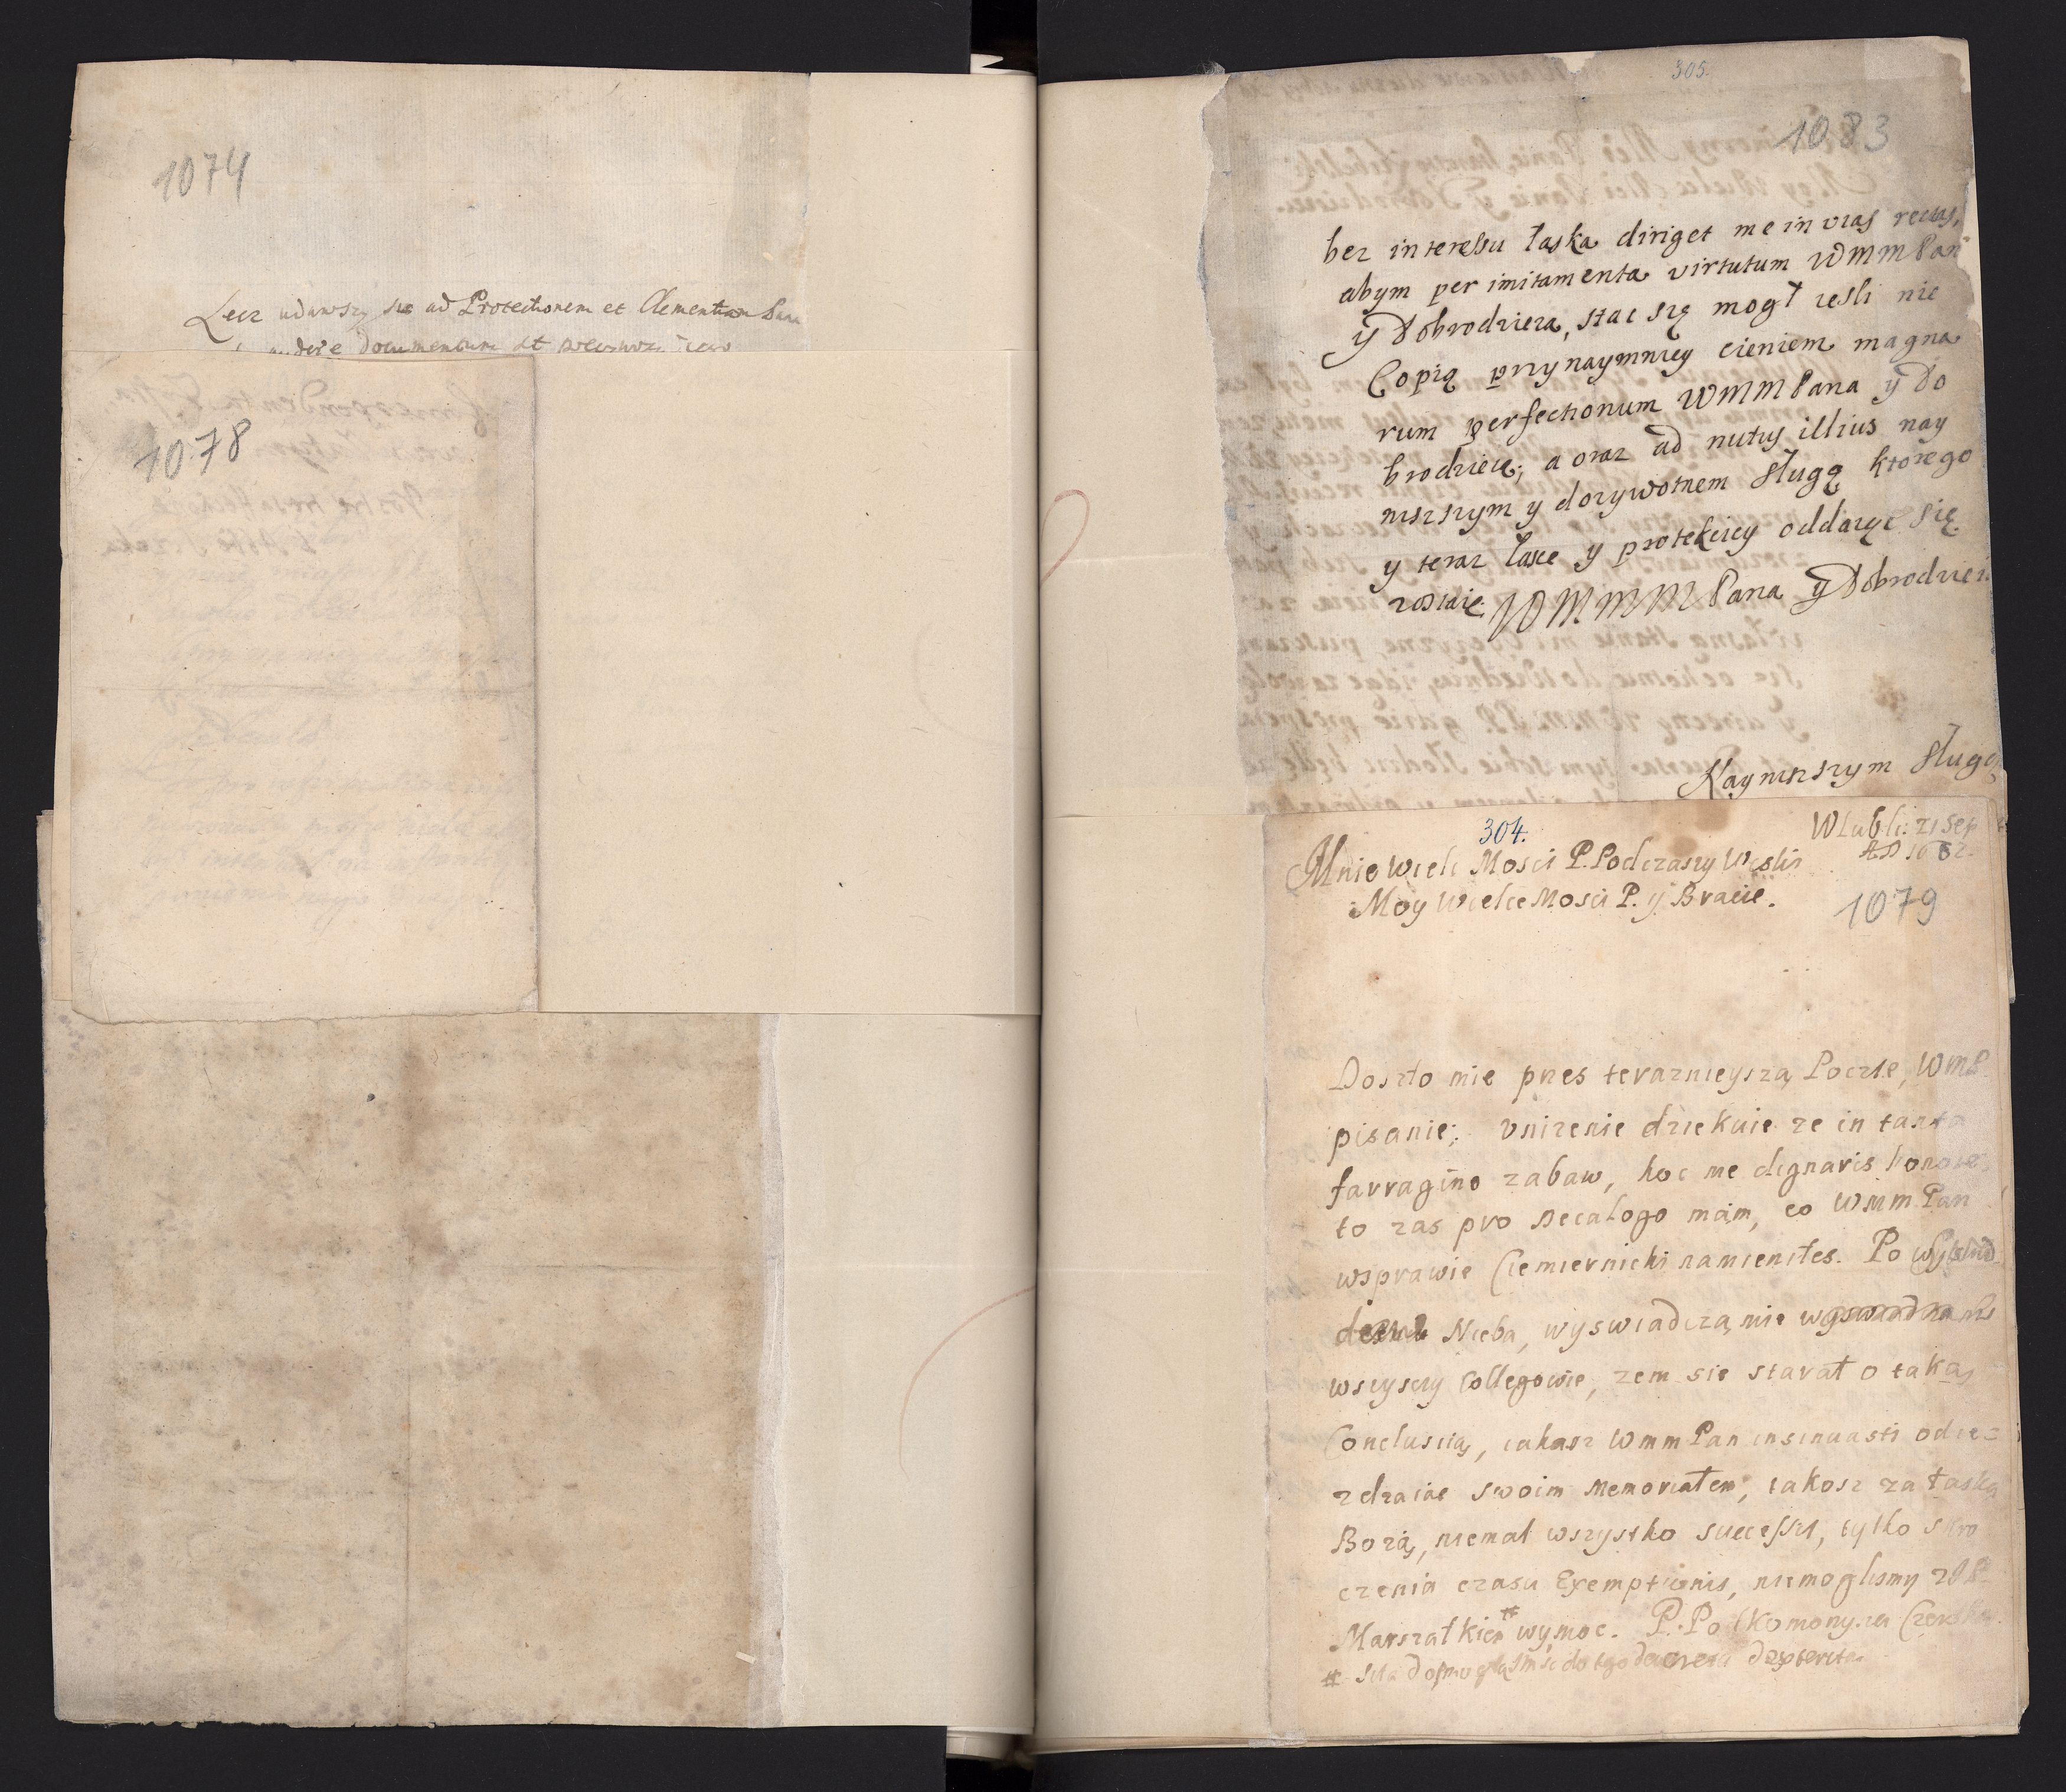 1074
Lecz udawszy sie ad Protectionem et Clementiam
documentum et
1078
305.
1083
bez interessu łaska diriget me in vias rectas,
abym per imitamenta virtutum WMMPan
y Dobrodzieia, stac się mogł iesli nie
Copią przynaymniey cieniem magna
rum perfectionum WMMPana y Do
brodzieia; a oraz ad nutus illius nay
niszszym y dozywotnem sługą ktorego
y teraz łasce y protekciey oddaiąc się
zostaię. WMMMPana y Dobrodziei
Nayniszszym sługą
304.
W Lubli: 21 Sep
AD 1682.
Mnie Wielc Mosci P. Podczaszy Wislis
Moy Wielce Mosci P. y Bracie.
1079
Doszło mie przes teraznieyszą Poczte, WMP
pisanie; vnizenie dziekuie ze in tanta
farragine zabaw, hoc me dignaris honore,
to zas pro Decalogo mam, co WMM Pan
wsprawie Ciemiernicki namieniłes. Po
Nieba, wyswiadczą mie
wszyscy Collegowie, zem sie starał o taką
Conclusią, iakasz WMM Pan insinuasti odiez
zdzaiac swoim Memoriałem, iakosz za łaską
Bozą, niemal wszystko successit, tylko skro
czenia czasu Exemptionis, niemoglismy z JP
Marszałkiem # wymoc. P. Potkomorzy
# siła do tego decreta dexterita